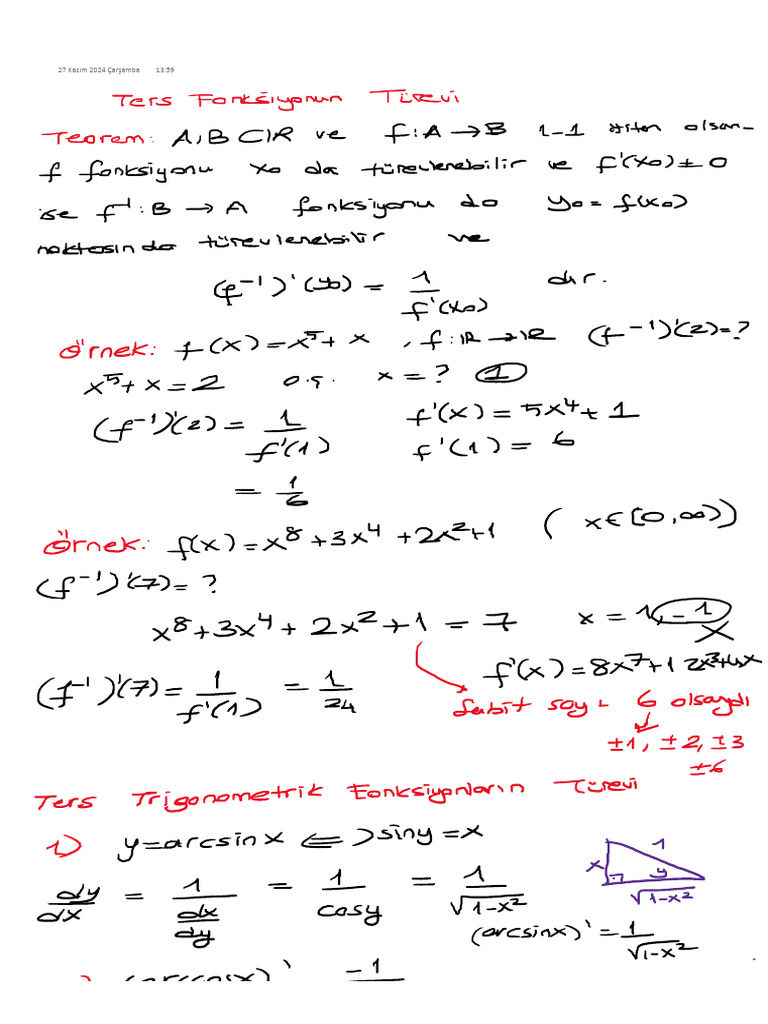 27 Kasım 2024 Çarşamba 13:59
Ters Fonksiyonun Türevi
Teorem: A,B C IR ve f:A→B 1-1 örten olsun.
f fonksiyonu x₀ da türevlenebilir ve f'(x₀)≠0
ise f⁻¹:B→A fonksiyonu da y₀=f(x₀)
noktasında türevlenebilir ve
(f⁻¹)'(y₀) = 1/f'(x₀) dır.
Örnek: f(x)=x⁵+x , f:IR→IR (f⁻¹)'(2)=?
x⁵+x=2 o.ş. x=? 1
(f⁻¹)'(2) = 1/f'(1) f'(x)=5x⁴+1
f'(1)=6
= 1/6
Örnek: f(x)=x⁸+3x⁴+2x²+1 (x∈[0,∞))
(f⁻¹)'(7)=?
x⁸+3x⁴+2x²+1=7 x=1,-1 X
f'(x)=8x⁷+12x³+4x
(f⁻¹)'(7) = 1/f'(1) = 1/24
Sabit sayı 6 olsaydı
±1, ±2, ±3
±6
Ters Trigonometrik Fonksiyonların Türevi
1) y=arcsinx ⇔ siny=x
1
x y
√1-x²
dy/dx = 1/(dx/dy) = 1/cosy = 1/√1-x²
(arcsinx)' = 1/√1-x²
(arccosx)' -1